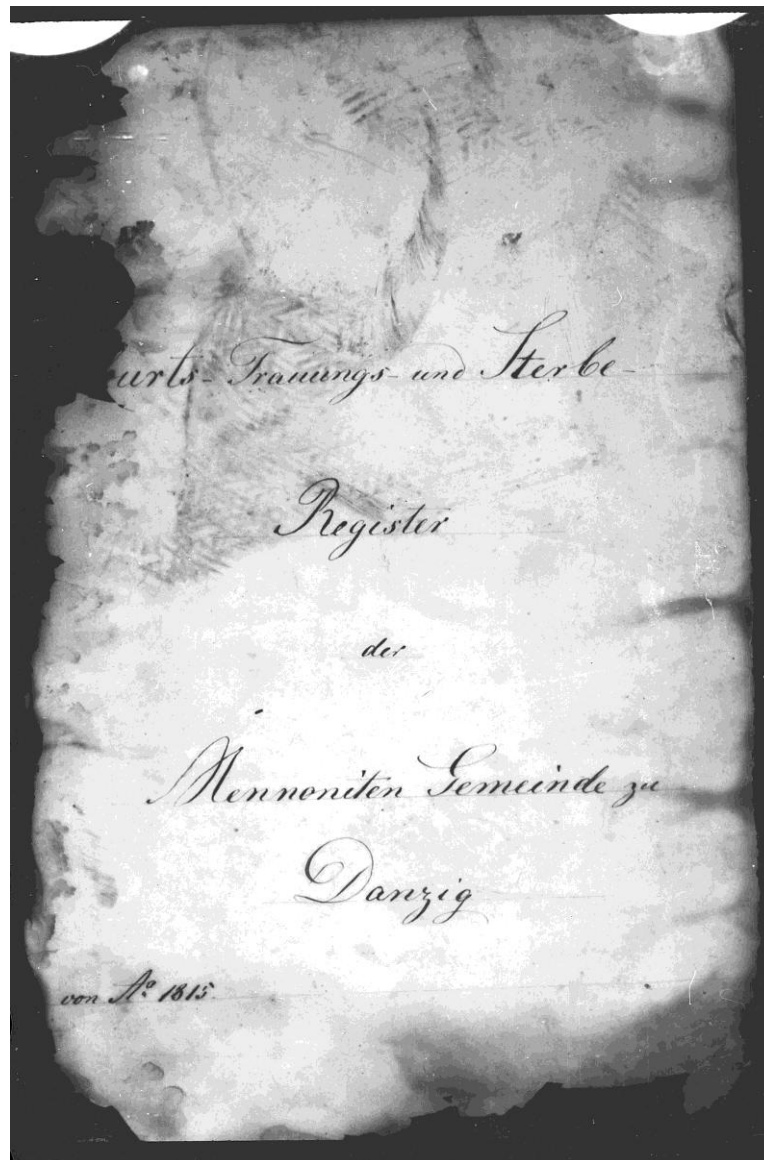 urts-Trauungs-und Sterbe-
Register
der
Mennoniten Gemeinde zu
Danzig
von Aº 1815